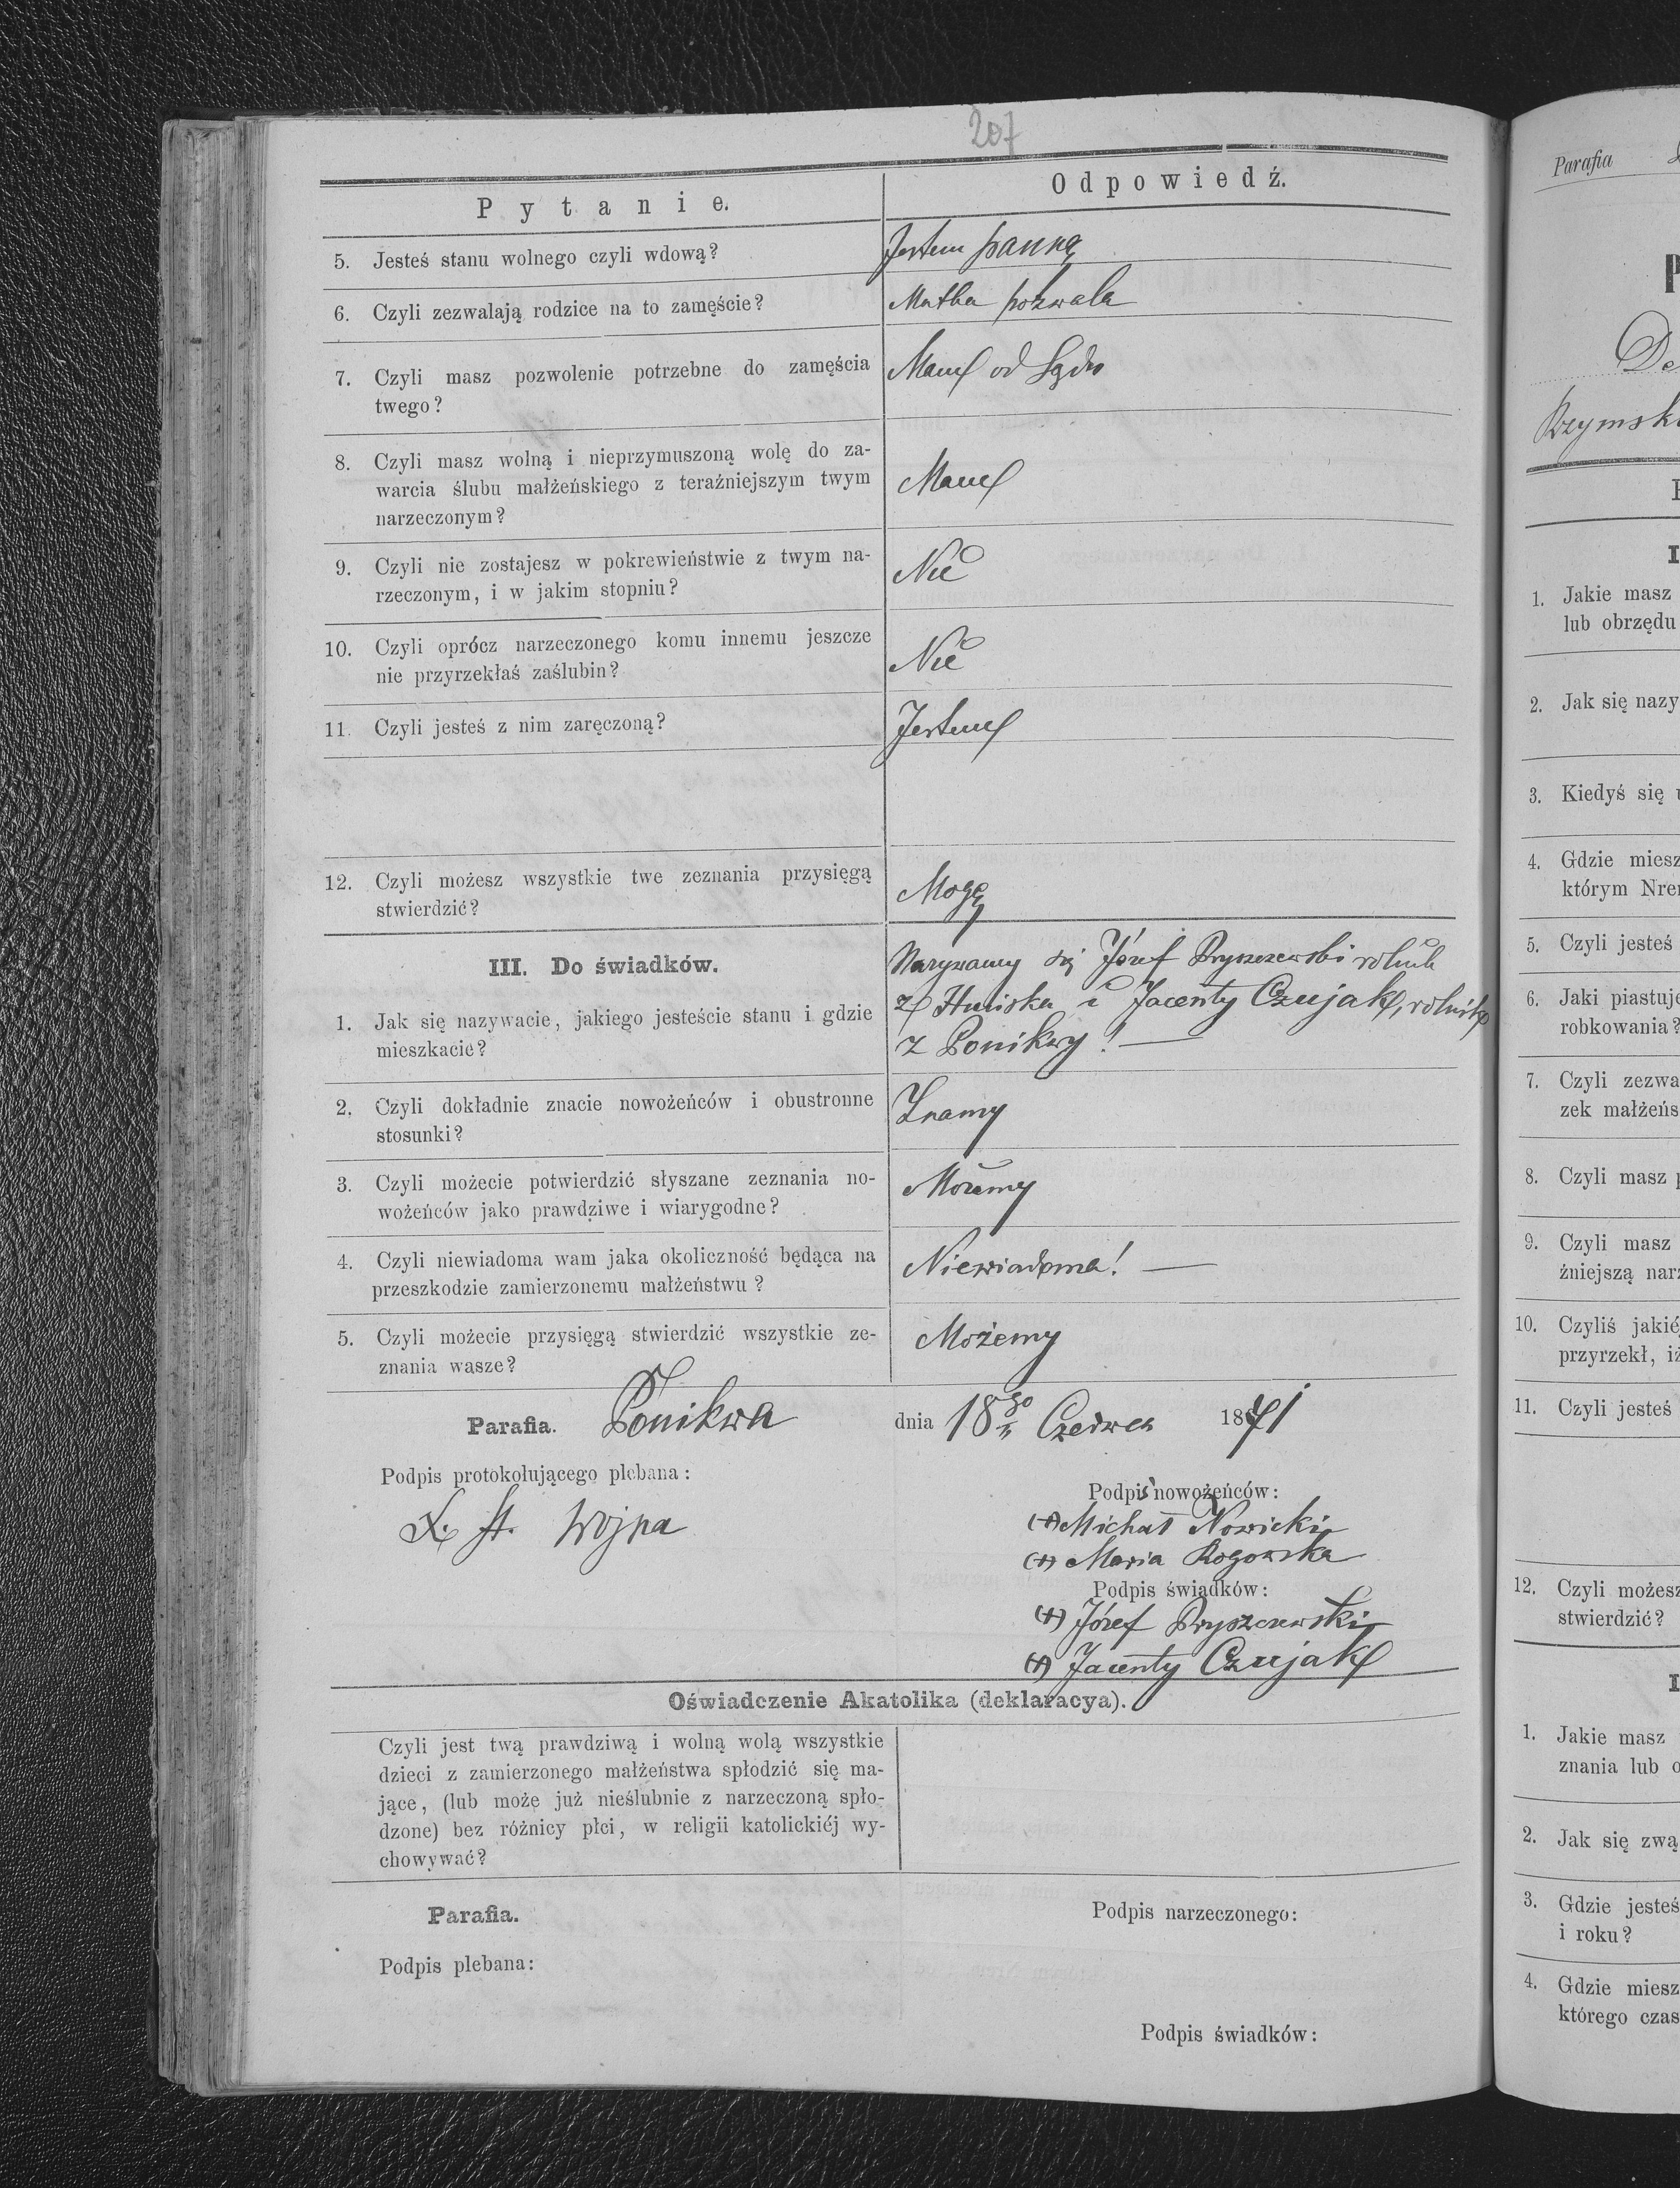 207
Pytanie.
Odpowiedź.
5. Jesteś stanu wolnego czyli wdową?
Jestem panną
6. Czyli zezwalają rodzice na to zamęście?
Matka pozwala
7. Czyli masz pozwolenie potrzebne do zamęścia
twego?
Mam od Sądu
8. Czyli masz wolną i nieprzymuszoną wolę do za-
warcia ślubu małżeńskiego z teraźniejszym twym
narzeczonym?
Mam
9. Czyli nie zostajesz w pokrewieństwie z twym na-
rzeczonym, i w jakim stopniu?
Nie
10. Czyli oprócz narzeczonego komu innemu jeszcze
nie przyrzekłaś zaślubin?
Nie
11. Czyli jesteś z nim zaręczoną?
Jestem
12. Czyli możesz wszystkie twe zeznania przysięgą
stwierdzić?
Mogę
III. Do świadków.
1. Jak się nazywacie, jakiego jesteście stanu i gdzie
mieszkacie?
Nazywamy się Józef Pryszczewski rolnik
z Huciska i Jacenty Czujak, rolnik
z Ponikwy! —
2. Czyli dokładnie znacie nowożeńców i obustronne
stosunki?
Znamy
3. Czyli możecie potwierdzić słyszane zeznania no-
wożeńców jako prawdziwe i wiarygodne?
Możemy
4. Czyli niewiadoma wam jaka okoliczność będąca na
przeszkodzie zamierzonemu małżeństwu?
Niewiadoma! —
5. Czyli możecie przysięgą stwierdzić wszystkie ze-
znania wasze?
Możemy
Parafia. Ponikwa dnia 18go Czerwca 1871
Podpis protokołującego plebana:
X. St. Wojna
Podpis nowożeńców:
(+) Michał Nowicki
(+) Maria Rogowska
Podpis świadków:
(+) Józef Pryszczewski
(+) Jacenty Czujak
Oświadczenie Akatolika (deklaracya).
Czyli jest twą prawdziwą i wolną wolą wszystkie
dzieci z zamierzonego małżeństwa spłodzić się ma-
jące, (lub może już nieślubnie z narzeczoną spło-
dzone) bez różnicy płci, w religii katolickiéj wy-
chowywać?
Parafia.
Podpis narzeczonego:
Podpis plebana:
Podpis świadków:
Parafia
P
De
Rzymsk
I
1. Jakie masz
lub obrzędu
2. Jak się nazy
3. Kiedyś się u
4. Gdzie miesz
którym Nre
5. Czyli jesteś
6. Jaki piastuje
robkowania?
7. Czyli zezwa
zek małżeńs
8. Czyli masz p
9. Czyli masz
źniejszą narz
10. Czyliś jakié
przyrzekł, iż
11. Czyli jesteś
12. Czyli możesz
stwierdzić?
I
1. Jakie masz
znania lub o
2. Jak się zwą
3. Gdzie jesteś
i roku?
4. Gdzie miesz
którego czas